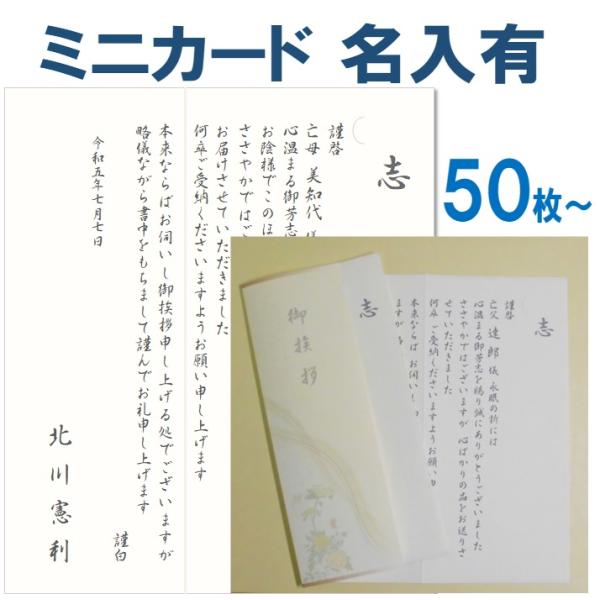 ミニカード 名入有
50枚~
志
謹啓
亡母 美知代 儀
心温まる御芳志
お陰様でこのほ
ささやかではご
お届けさせていただきました
何卒ご受納くださいますようお願い申し上げます
本来ならばお伺いし御挨拶申し上げる処でございますが
略儀ながら書中をもちまして謹んでお礼申し上げます
謹白
令和五年七月七日
北川憲利
志
謹啓
亡父 達郎 儀 永眠の折には
心温まる御芳志を賜り誠にありがとうございました
ささやかではございますが 心ばかりの品をお送りさ
せていただきました
何卒 ご受納くださいますようお願い申
本来ならば お伺いし
ますが
志
御挨拶